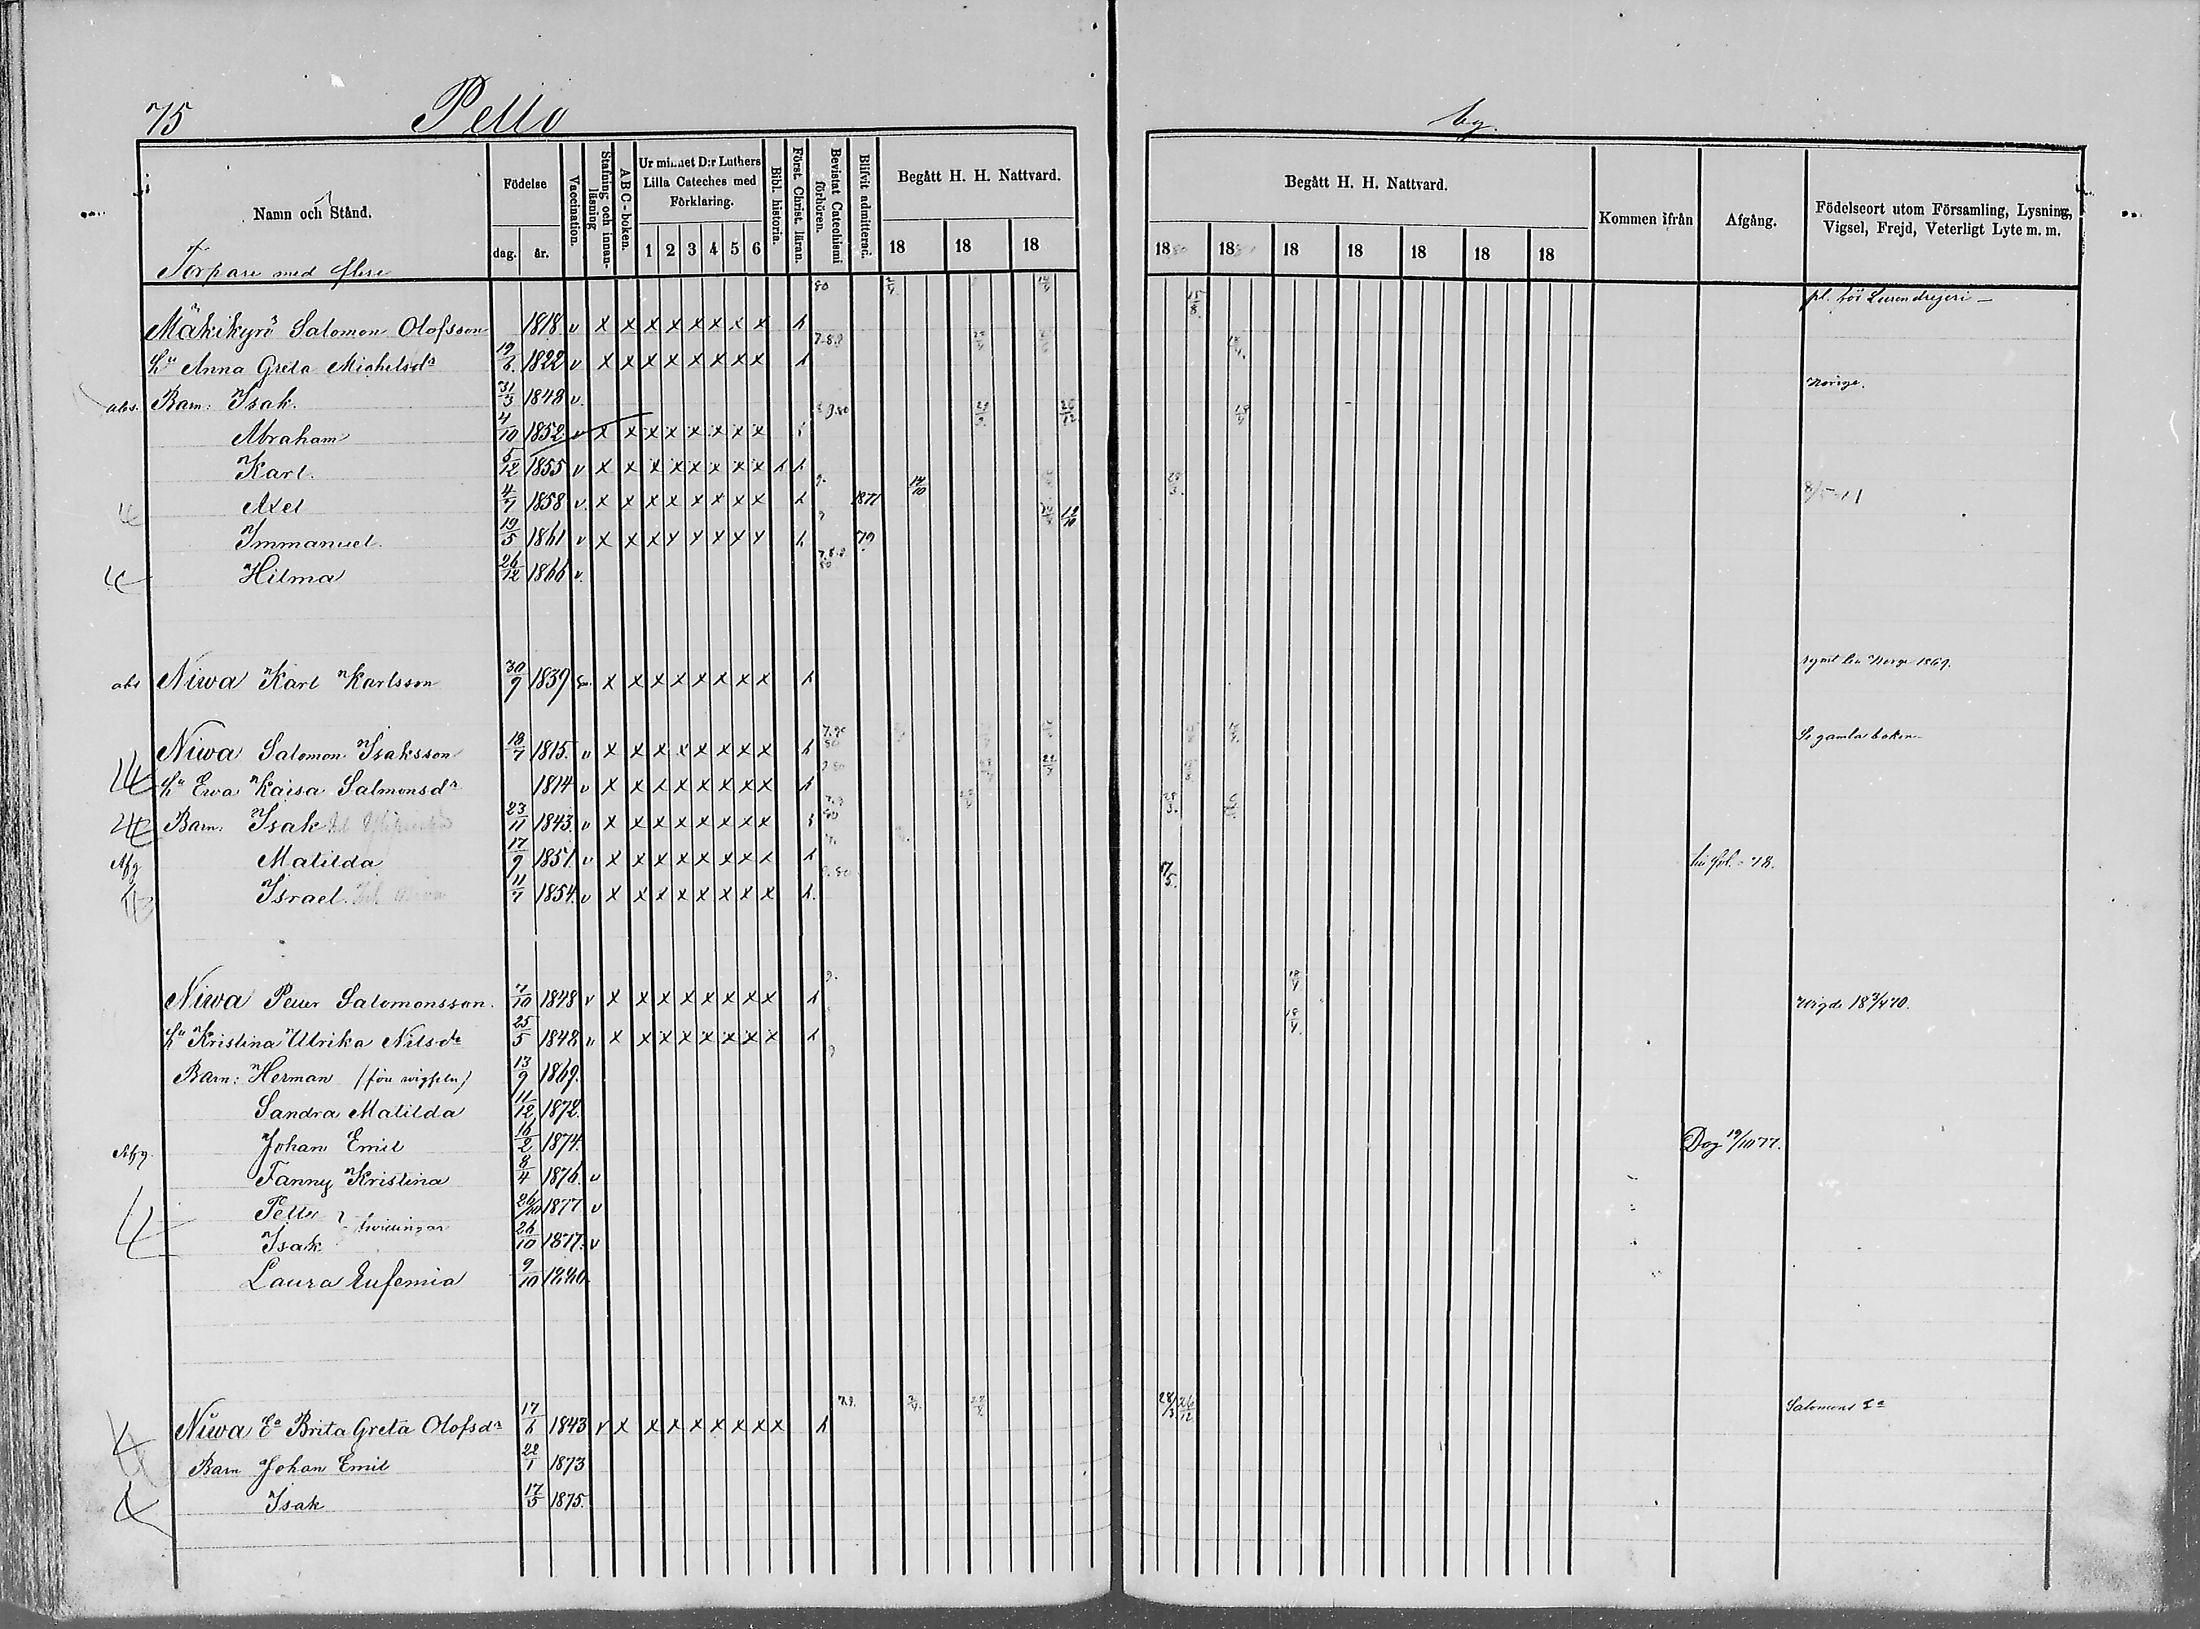 75 Pello by.
Namn och Stånd. Födelse dag. år. Vaccination. Stafning och innanläsning ABC-boken. Ur minnet D:r Luthers Lilla Cateches med Förklaring. 1 2 3 4 5 6 Bibl. historia. Först. Christ. läran. Bevistat Catechismi förhören. Blifvit admitterad. Begått H. H. Nattvard. 18 18 18
Begått H. H. Nattvard. 1880 18 18 18 18 18 18 Kommen ifrån Afgång. Födelseort utom Församling, Lysning, Vigsel, Frejd, Veterligt Lyte m. m.
Torpare med flere
Mäkikyrö Salomon Olofsson 1818 v x x x x x x x x h 80 15/8 pl. för Lurendrejeri
hu Anna Greta Michelsdr 19/6 1822 v x x x x x x x x h 7.8.9
abs. Barn: Isak. 31/3 1849 v. Norige.
Abraham 4/10 1852 v x x x x x x x x h 26/12
Karl. 5/12 1855 v x x x x x x x x h h
Axel 4/7 1858 v. x x x x x x x x h 9. 1877 14/10 8/5 11
Immanuel. 19/5 1861 v x x x x x x x x h 9 79 19/10
Hilma 26/12 1866 v. 7.8.9 80
abs Niwa Karl Karlsson 30/9 1839 x x x x x x x x h rymt till Norge 1869.
Niwa Salomon Isaksson 18/7 1815. v x x x x x x x x h 80 Se gamla boken
hu Ewa Kaisa Salmonsdr 1814 v x x x x x x x x h
Barn. Isak 23/11 1843. v x x x x x x x x
Afg Matilda 17/9 1851. v x x x x x x x x h till fol. 78.
Israel. 11/7 1854. v x x x x x x x x h. 17/5.
Niwa Petter Salomonsson. 7/10 1848 v x x x x x x x x h 9. 18/4 Vigde 18 3/4 70.
hu Kristina Ulrika Nilsdr 25/5 1848 v x x x x x x x x h 18/4
Barn: Herman (före wigseln) 13/9 1869. 9
Sandra Matilda 11/12 1872.
Afg. Johan Emil 16/2 1874. Dog 19/10 77.
Fanny Kristina 8/4 1876. v
Petter } twillingar 26/10 1877 v
Isak 26/10 1877. v
Laura Eufemia 9/10 1880.
Niwa Ea Brita Greta Olofsdr 17/6 1843 v x x x x x x x x h 7.9. 28/3 26/12 Salomons Ea
Barn Johan Emil 22/1 1873
Isak 17/5 1875.